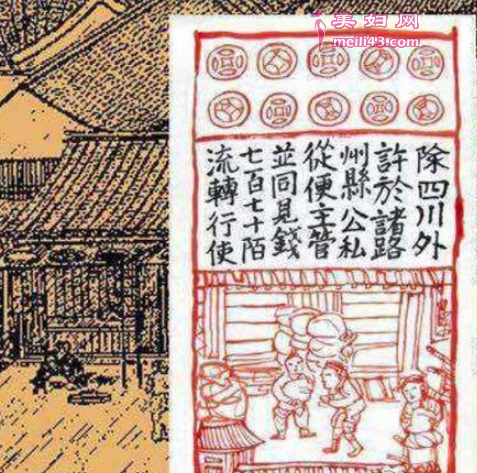 美妇网
meili43.com
除四川外
許於諸路
州縣公私
從便主管
並同見錢
七百七十陌
流轉行使